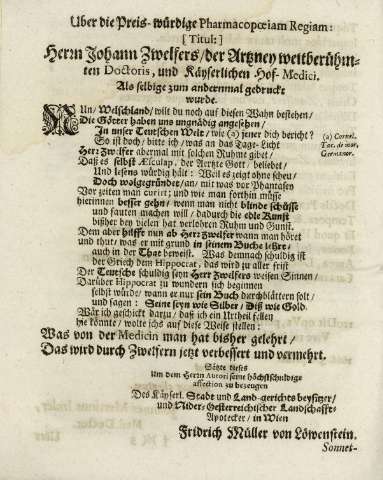 Uber die Preis-würdige Pharmacopœiam Regiam:
[Titul:]
Herrn Johann Zwelfers/der Artzney weitberühm-
ten Doctoris, und Käyserlichen Hof-Medici.
Als selbige zum andernmal gedruckt
wurde.
NUn/ Welschland/ wilt du noch auf diesen Wahn bestehen/
Die Götter haben uns ungnädig angesehen/
In unser Teutschen Welt/ wie (a) jener dich bericht?
So ist doch/ bitte ich/ was an das Tage-Licht
Herr Zwelfer abermal mit solchen Ruhme gibet/
Daß es selbst Æsculap, der Aertzte Gott/ beliebet/
Und lesens würdig hält: Weil es zeigt ohne scheu/
Doch wolgegründet/an/ mit was vor Phantasey
Vor zeiten man curirt; und wie man forthin müsse
hierinnen besser gehn/ wenn man nicht blinde schüsse
und fauten machen will/ dadurch die edle Kunst
bißher bey vielen hat verlohren Ruhm und Gunst.
Dem aber hilfft nun ab Herr Zwelfer wann man höret
und thut/ was er mit grund in seinem Buche lehret/
auch in der That beweist. Was demnach schuldig ist
der Griech dem Hippocrat, das wird zu aller frist
Der Teutsche schuldig seyn Herr Zwelfers weisen Sinnen/
Darüber Hippocrat zu wundern sich beginnen
selbst würde/ wann er nur sein Buch durchblättern solt/
und sagen: Seine seyn wie Silber/ Diß wie Gold.
Wär ich geschickt darzu/ daß ich ein Urtheil fellen
hie könnte/ wolte ichs auf diese Weise stellen:
Was von der Medicin man hat bisher gelehrt/
Das wird durch Zwelfern jetzt verbessert und vermehrt.
(a) Cornel.
Tac. de mor.
Germanor.
Sätzte dieses
Um dem Herrn Autori seine höchstschuldige
affection zu bezeugen
Des Käyserl. Stadt und Land-gerichts beysitzer/
und Nider-Oesterreichischer Landschafft-
Apotecker/ in Wien
Fridrich Müller von Löwenstein.
Sonnet-